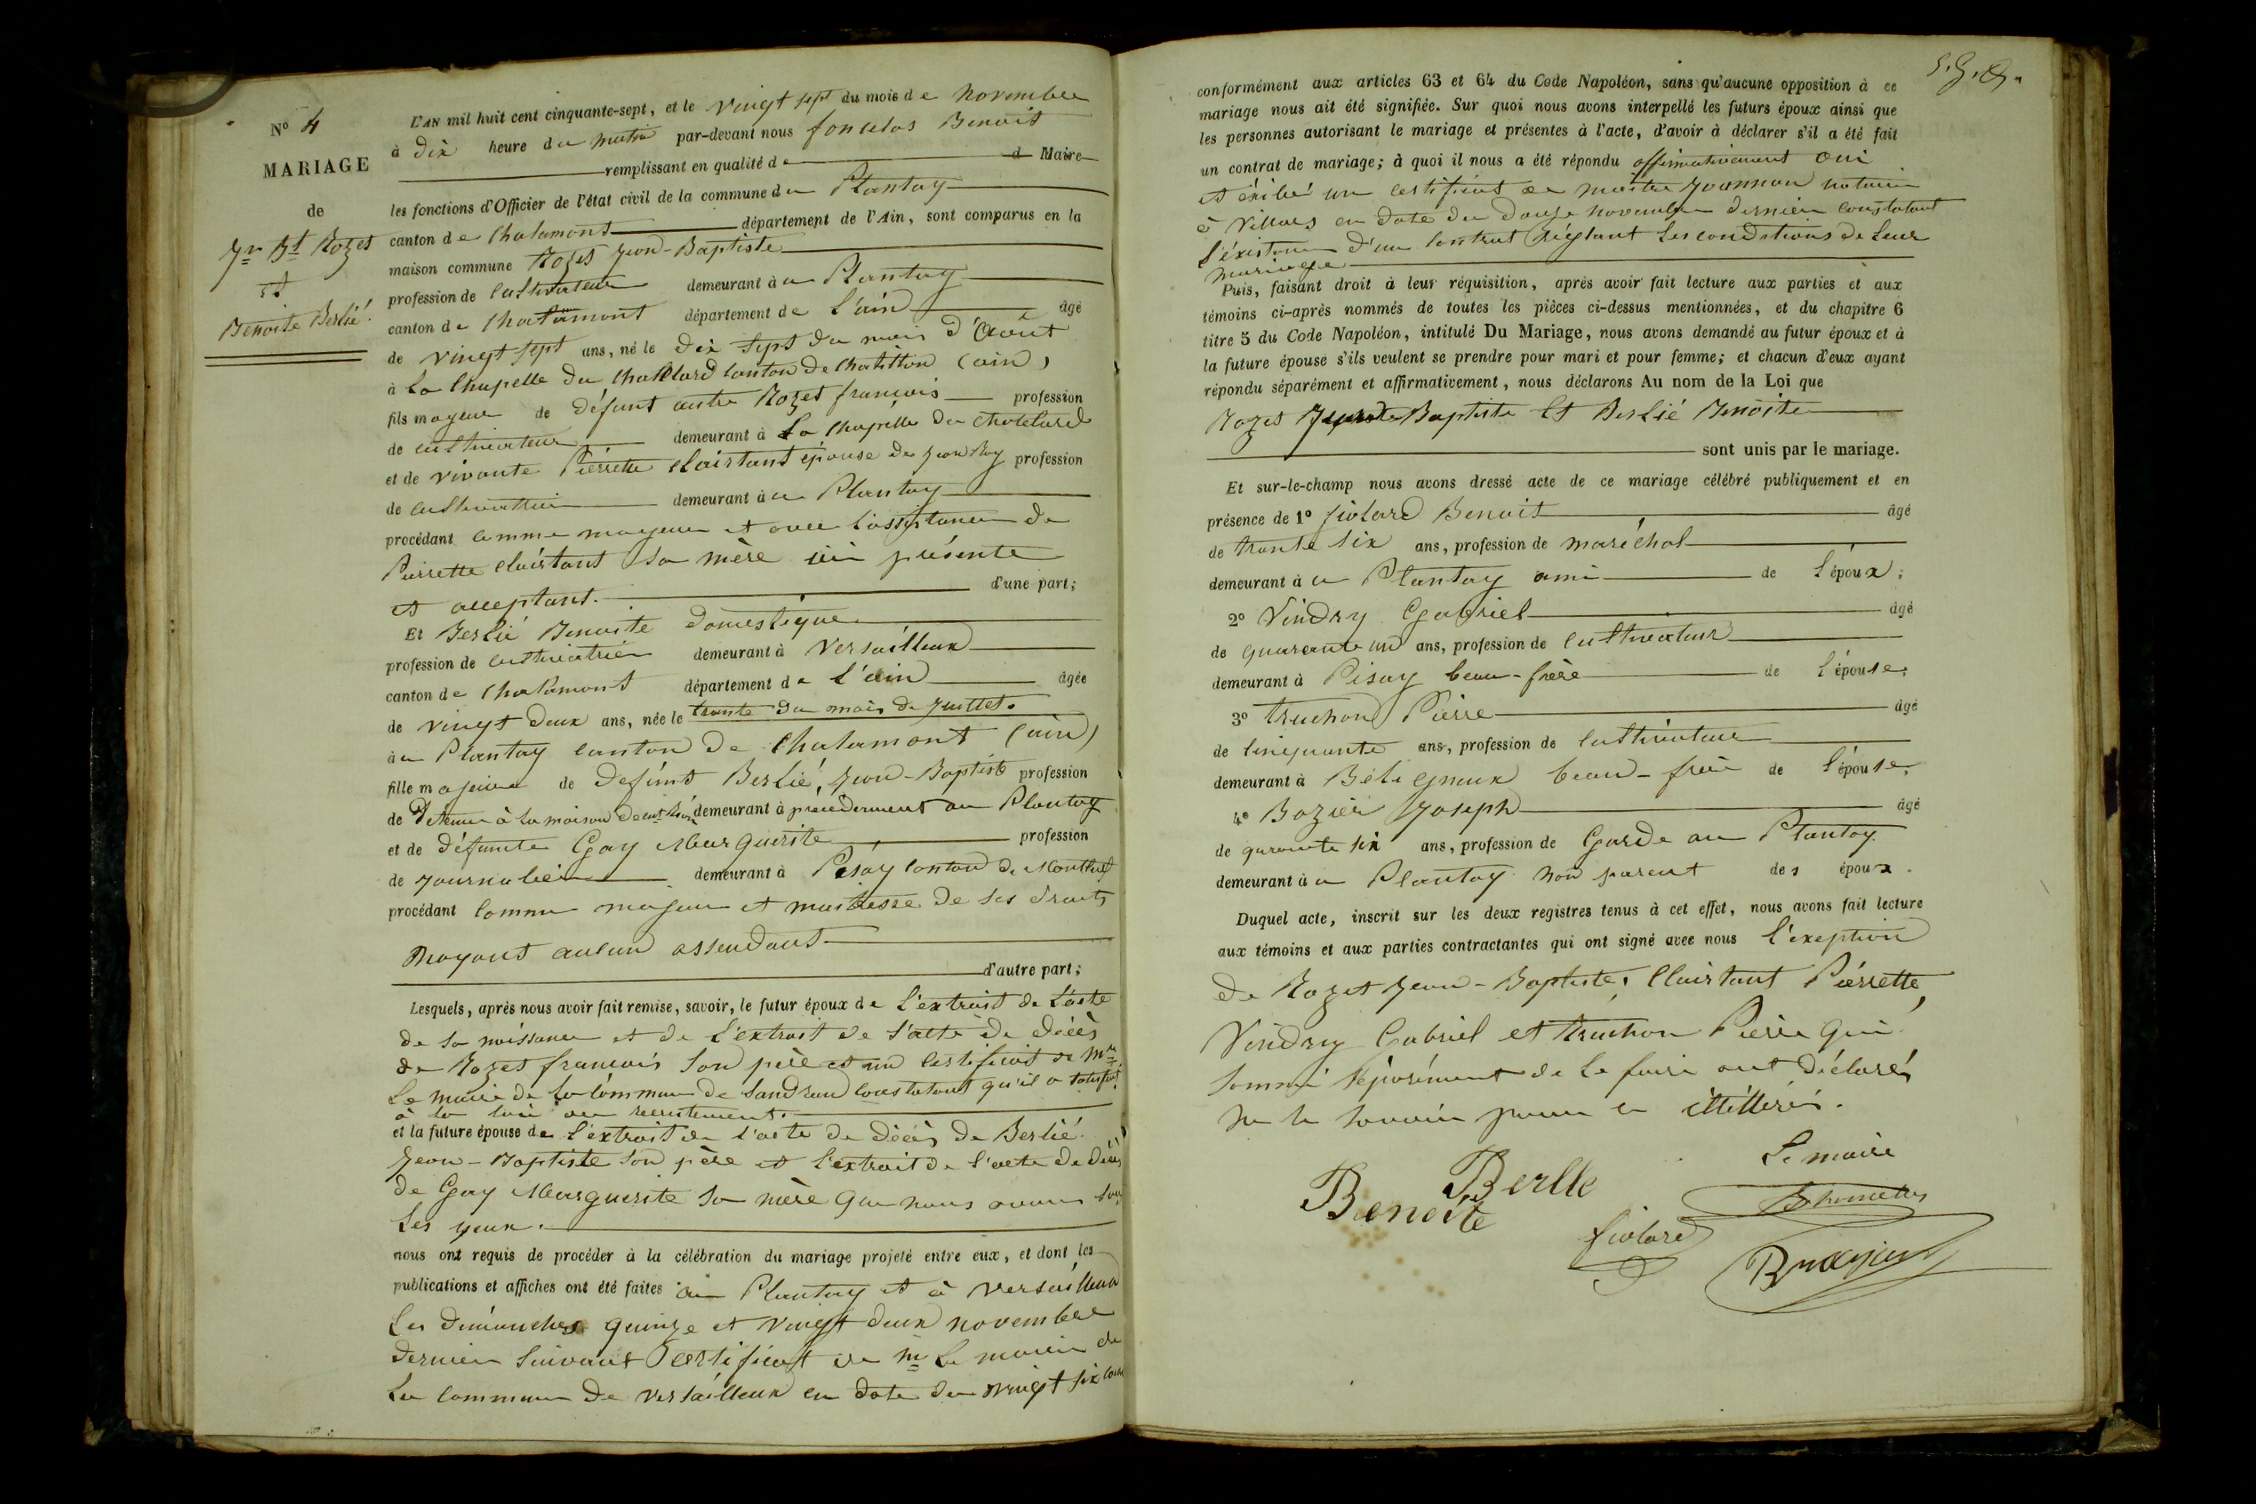 Nº 4
MARIAGE
de
Jn Bt Rozet
et
Benoite Berlié
L'AN mil huit cent cinquante-sept, et le vingt sept du mois de novembre
à dix heure du matin par-devant nous Benoit
remplissant en qualité de d Maire
les fonctions d'Officier de l'état civil de la commune du Plantay
canton de Chalamont département de l'Ain, sont comparus en la
maison commune Rozet Jean-Baptiste
profession de cultivateur demeurant à u Plantay
canton de Chalamont département de L'ain âgé
de vingt sept ans, né le dix sept du mois d'Août
à La Chapelle du Chatelard canton de Chatillon (ain)
fils majeur de défunt autre Rozet françois profession
de cultivateur demeurant à La Chapelle du Chatelard
et de vivante Pierrette Clairtant épouse de Jean Roy profession
de cultivatrice demeurant à u Plantay
procédant comme majeur et avec l'assistance de
Pierrette Clairtant sa mère ici présente
et acceptant. d'une part;
Et Berlié Benoite domestique
profession de cultivatrice demeurant à Versailleux
canton de Chalamont département de L'ain âgée
de vingt deux ans, née le trente du mois de Juillet.
à u Plantay canton de Chalamont (ain)
fille majeure de défunt Berlié, Jean-Baptiste profession
de Détenu à la maison de demeurant à précédemment au Plantay
et de défunte Gay Marguerite profession
de journalière demeurant à Pisay canton de Montluel
procédant comme majeure et maitresse de ses droits
Nayant aucun assendant
d'autre part;
Lesquels, après nous avoir fait remise, savoir, le futur époux de L'extrait de l'acte
de sa naissance et de L'extrait de l'acte de décès
de Rozet francois son père et un certificat de Mr
Le maire de la Commune de Sandran constatant qu'il a satisfait
à la loi au recrutement.
et la future épouse de L'extrait de l'acte de décès de Berlié
Jean-Baptiste son père et l'extrait de l'acte de décès
de Gay Marguerite sa mère que nous avons sous
Les yeux.
nous ont requis de procéder à la célébration du mariage projeté entre eux, et dont les
publications et affiches ont été faites au Plantay et à Versailleux
Les dimanches quinze et vingt deux novembre
dernier suivant Certificat de Mr Le maire de
La commune de Versailleux en date du vingt six
conformément aux articles 63 et 64 du Code Napoléon, sans qu'aucune opposition à ce
mariage nous ait été signifiée. Sur quoi nous avons interpellé les futurs époux ainsi que
les personnes autorisant le mariage et présentes à l'acte, d'avoir à déclarer s'il a été fait
un contrat de mariage; à quoi il nous a été répondu affirmativement oui
et éxibé un certificat de maitre Joannon notaire
à Villars en date du douze novembre dernier constatant
L'éxistence d'un contrat réglant Les conditions de Leur
mariage
Puis, faisant droit à leur réquisition, après avoir fait lecture aux parties et aux
témoins ci-après nommés de toutes les pièces ci-dessus mentionnées, et du chapitre 6
titre 5 du Code Napoléon, intitulé Du Mariage, nous avons demandé au futur époux et à
la future épouse s'ils veulent se prendre pour mari et pour femme; et chacun d'eux ayant
répondu séparément et affirmativement, nous déclarons Au nom de la Loi que
Rozet Jean-Baptiste Et Berlié Benoite
sont unis par le mariage.
Et sur-le-champ nous avons dressé acte de ce mariage célébré publiquement et en
présence de 1º fiolard Benoit âgé
de trente six ans, profession de maréchal
demeurant à u Plantay ami de l'époux;
2º Vindry Gabriel âgé
de quarante un ans, profession de cultivateur
demeurant à Pisay beau-frère de l'épouse;
3º truchon Pierre âgé
de cinquante ans, profession de cultivateur
demeurant à Béligneux beau-frère de l'épouse;
4º Bozier Joseph âgé
de quarante six ans, profession de Garde au Plantay
demeurant à u Plantay non parent des époux.
Duquel acte, inscrit sur les deux registres tenus à cet effet, nous avons fait lecture
aux témoins et aux parties contractantes qui ont signé avec nous l'exeption
de Rozet Jean-Baptiste, Clairtant Pierrette,
Vindry Gabriel et truchon Pierre qui
sommé séparément de le faire ont déclaré
ne le savoir pour illitérés.
Le maire
Berlle
Benoite
fiolard